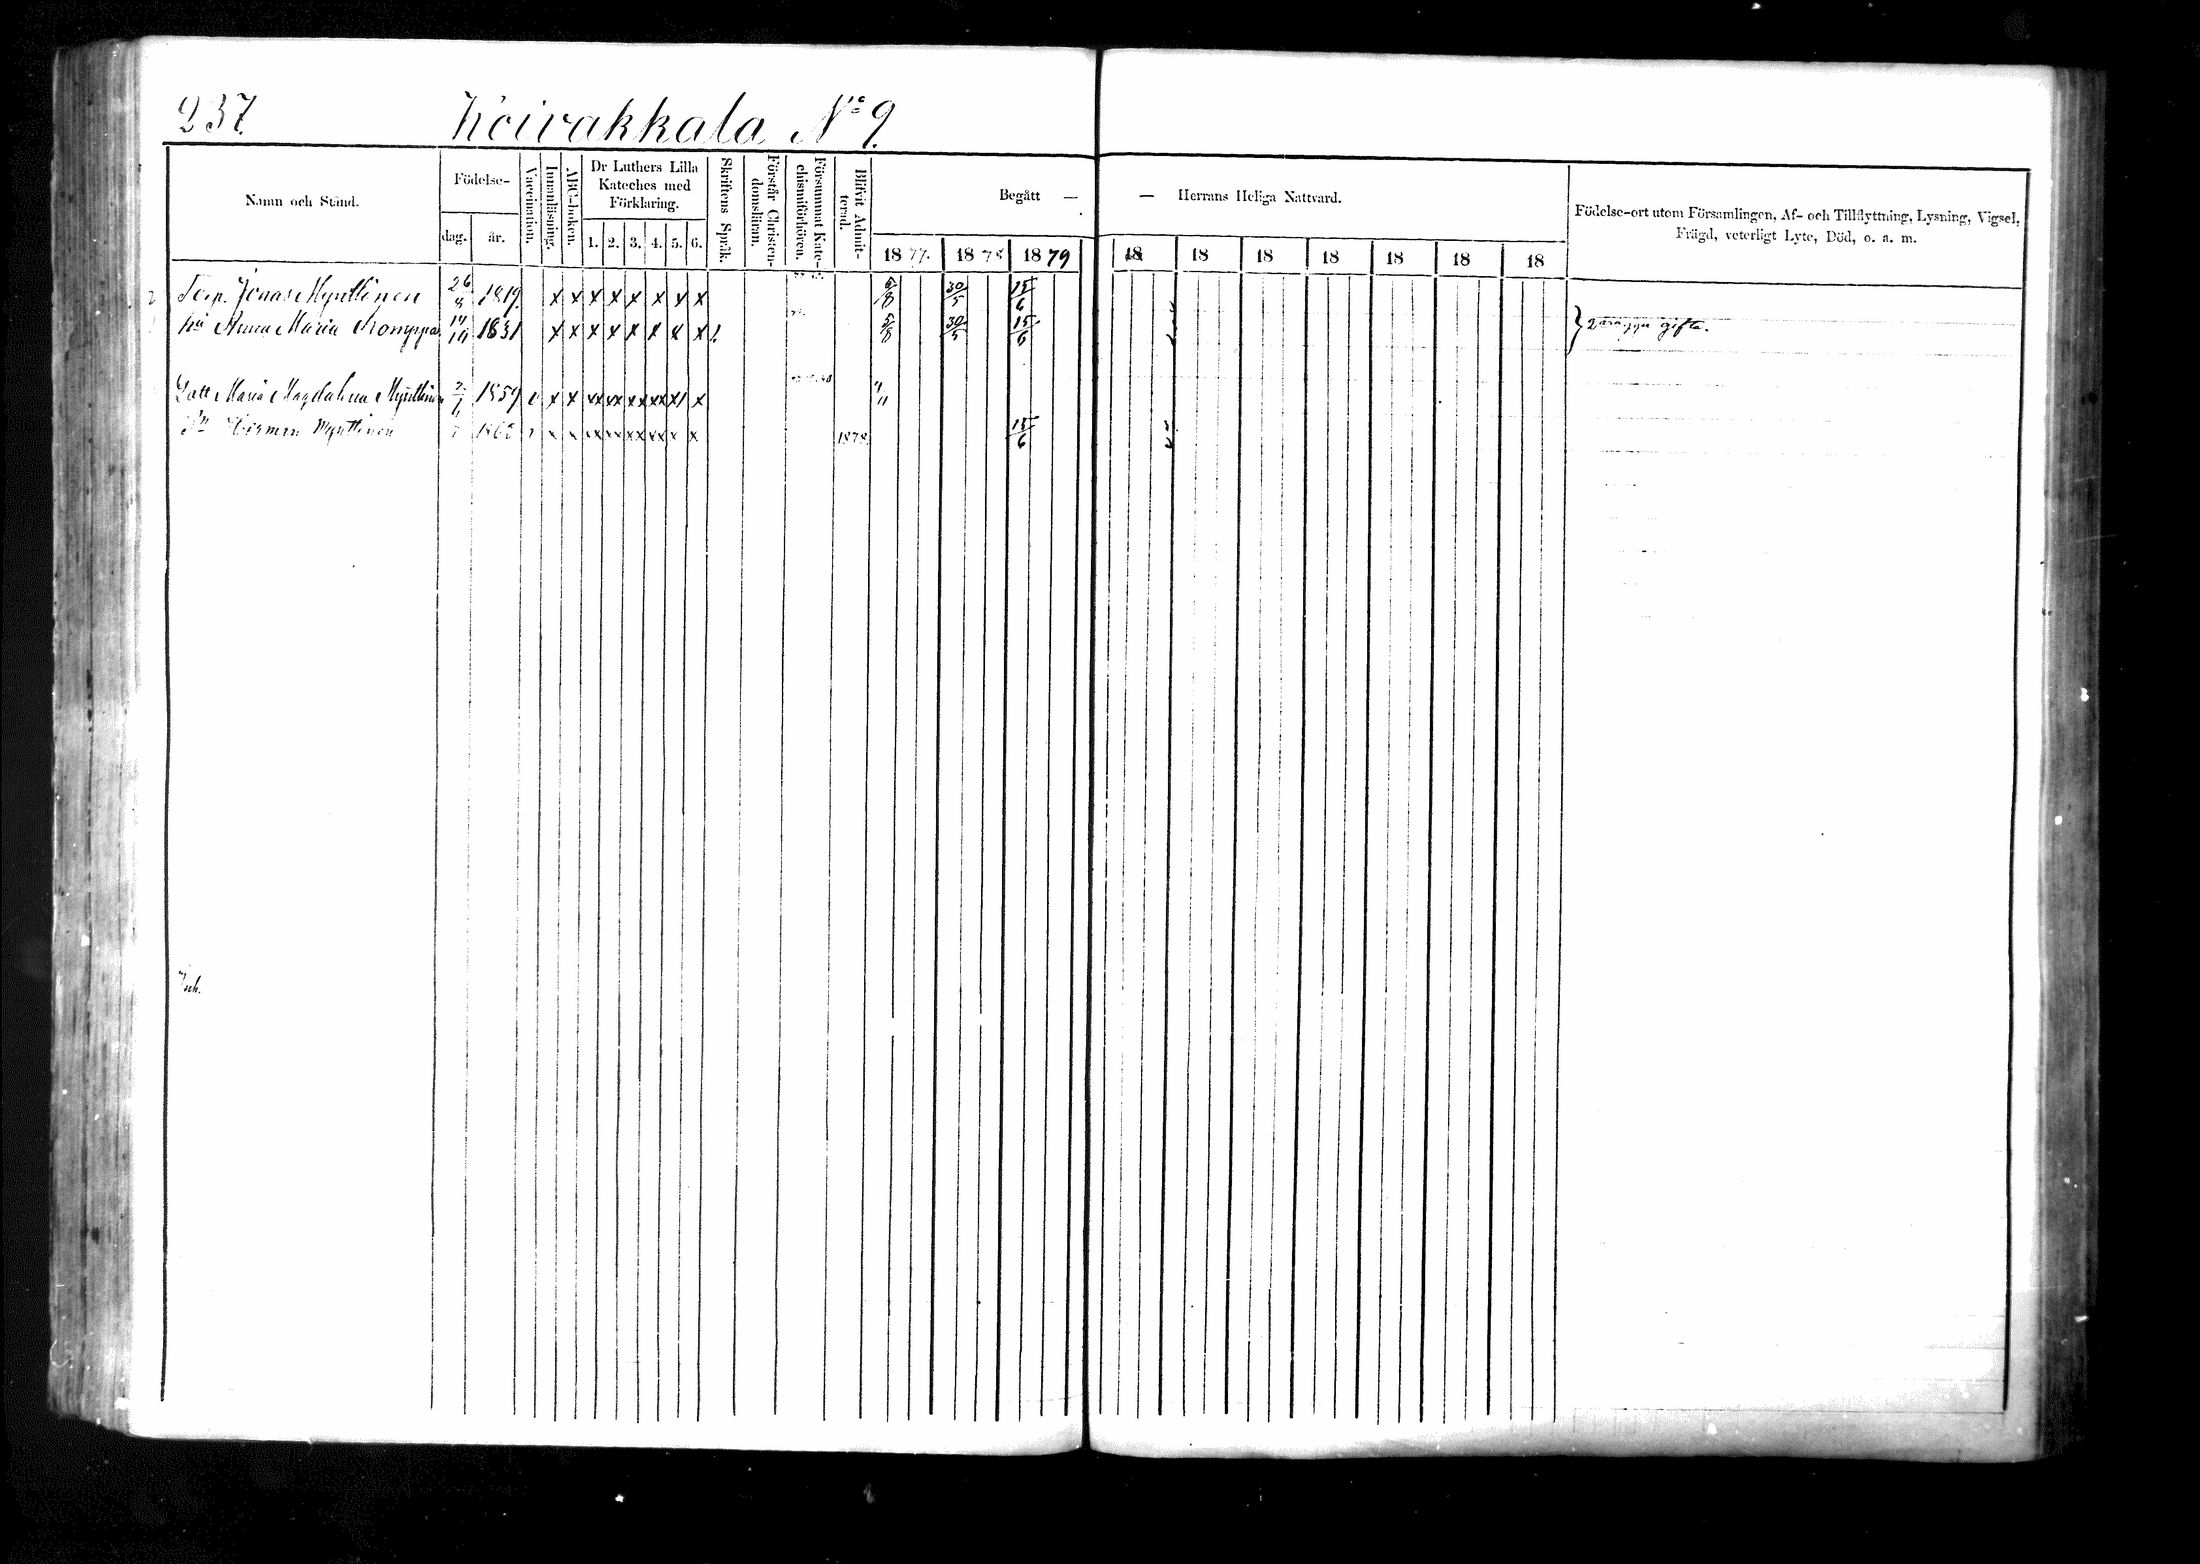 237.
Koivakkala No 9.
Namn och Stånd.
Födelse-
dag.
år.
Vaccination.
Innanläsning.
ABC-boken.
Dr Luthers Lilla
Kateches med
Förklaring.
1. 2. 3. 4. 5. 6.
Skriftens Språk.
Förstår Christen-
domsläran.
Försummat Kate-
chismiförhören.
Blifvit Admit-
terad.
Begått —
— Herrans Heliga Nattvard.
18 77. 18 78 18 79 18 18 18 18 18 18 18
Födelse-ort utom Församlingen, Af- och Tillflyttning, Lysning, Vigsel,
Frägd, veterligt Lyte, Död, o. a. m.
Torp. Jonas Mynttinen 26/8 1819 x x x x x x x x 5/8 30/5 15/6
hu Anna Maria Komppa 1831 x x x x x x x x 5/8 30/5 15/6
gifta.
Dott Maria Magdalena Mynttinen 1859 v x x xx xx xx xx x1 x
Herman Mynttinen x x xx xx xx xx x x 1878 15/6